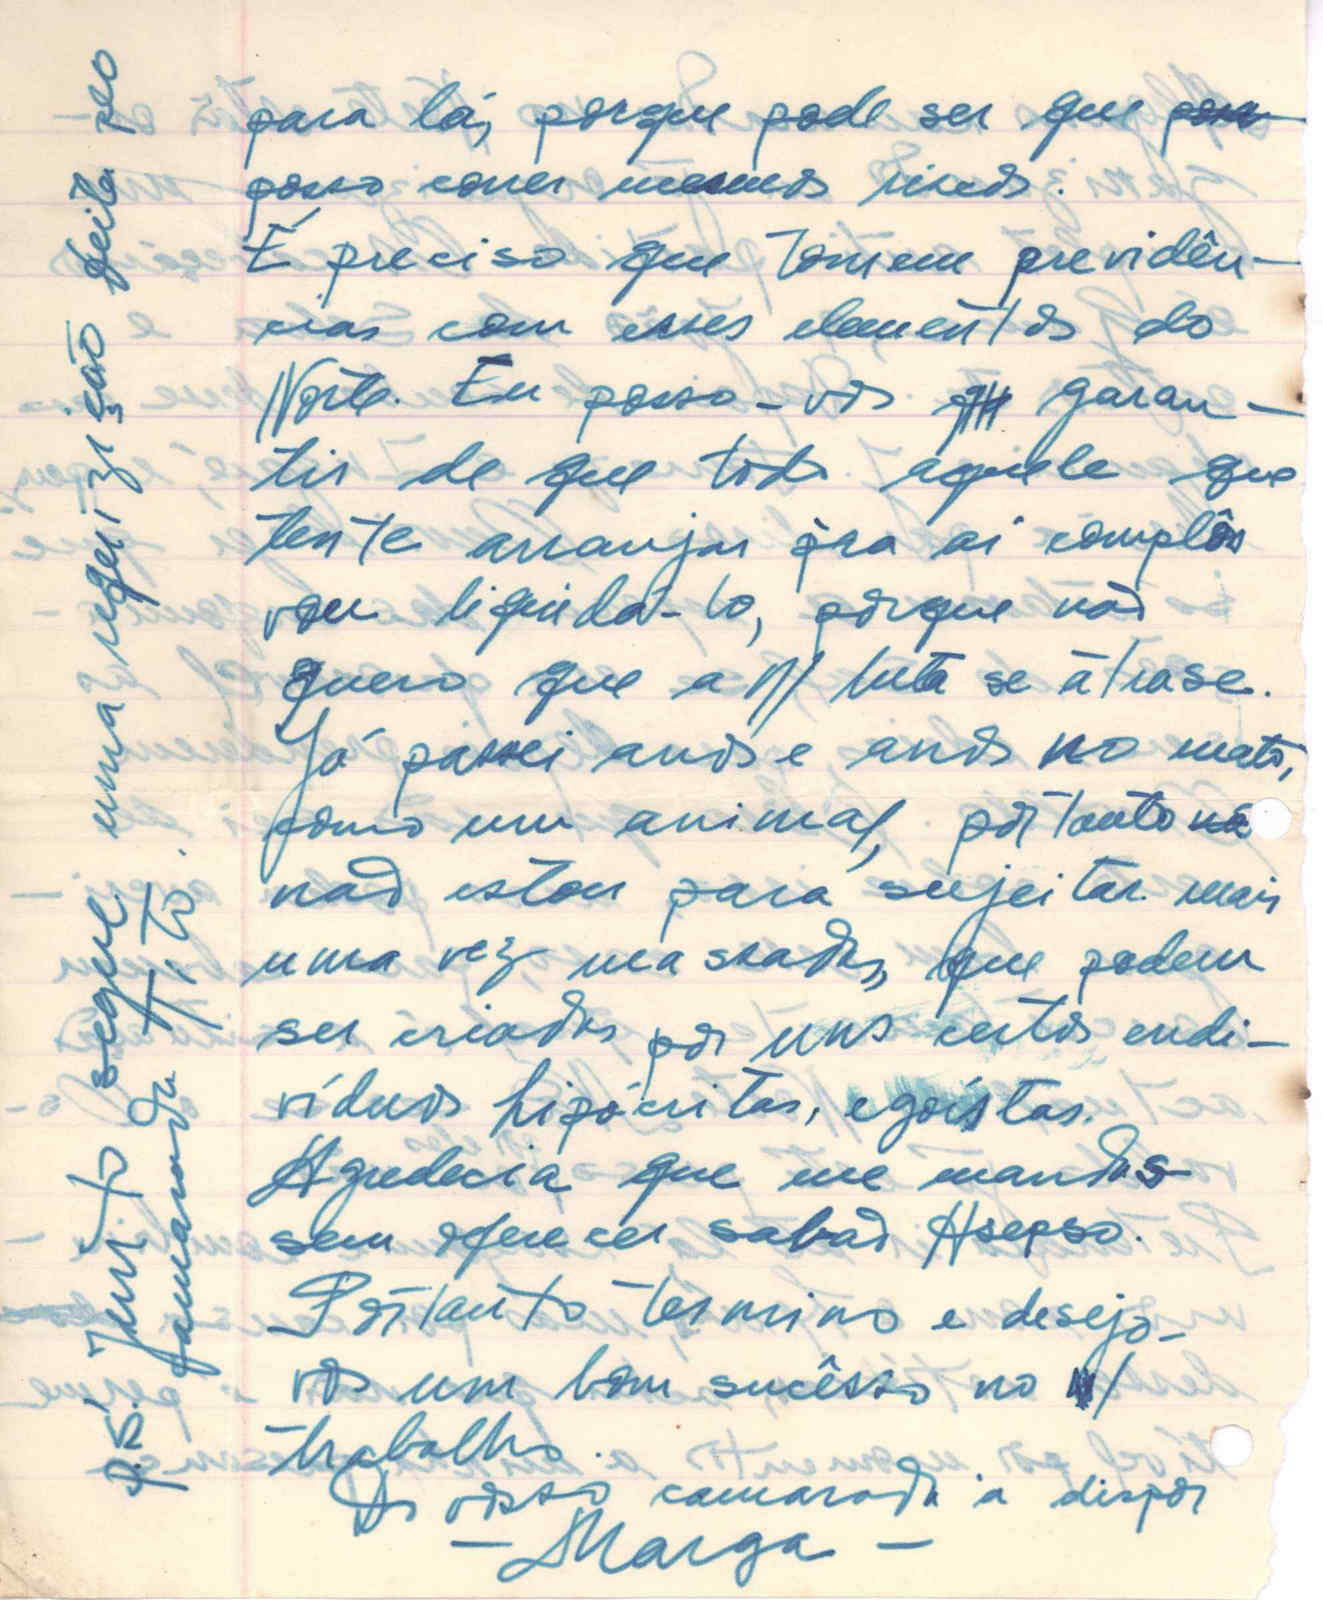 para lá, porque pode ser que
posso correr mesmos riscos.
É preciso que tomem previdên-
cias com esses elementos do
Norte. Eu posso-vos garan-
tir de que todo aquele que
tente arranjar pra aí complôs
vou liquidá-lo, porque não
quero que a N/ luta se átrase.
Já passei anos e anos no mato,
como um animal, portanto
não estou para sujeitar mais
uma vez massadas, que podem
ser criadas por uns certos endi-
víduos hipócritas, egoístas.
Agradecia que me mandas
sem oferecer sabão Asepso.
Portanto termino e desejo-
vos um bom sucêsso no V/
trabalho.
Do vosso camarada à dispor
- Marga -
P.S. Junto segue uma requizição feita pelo
camarada Tito.